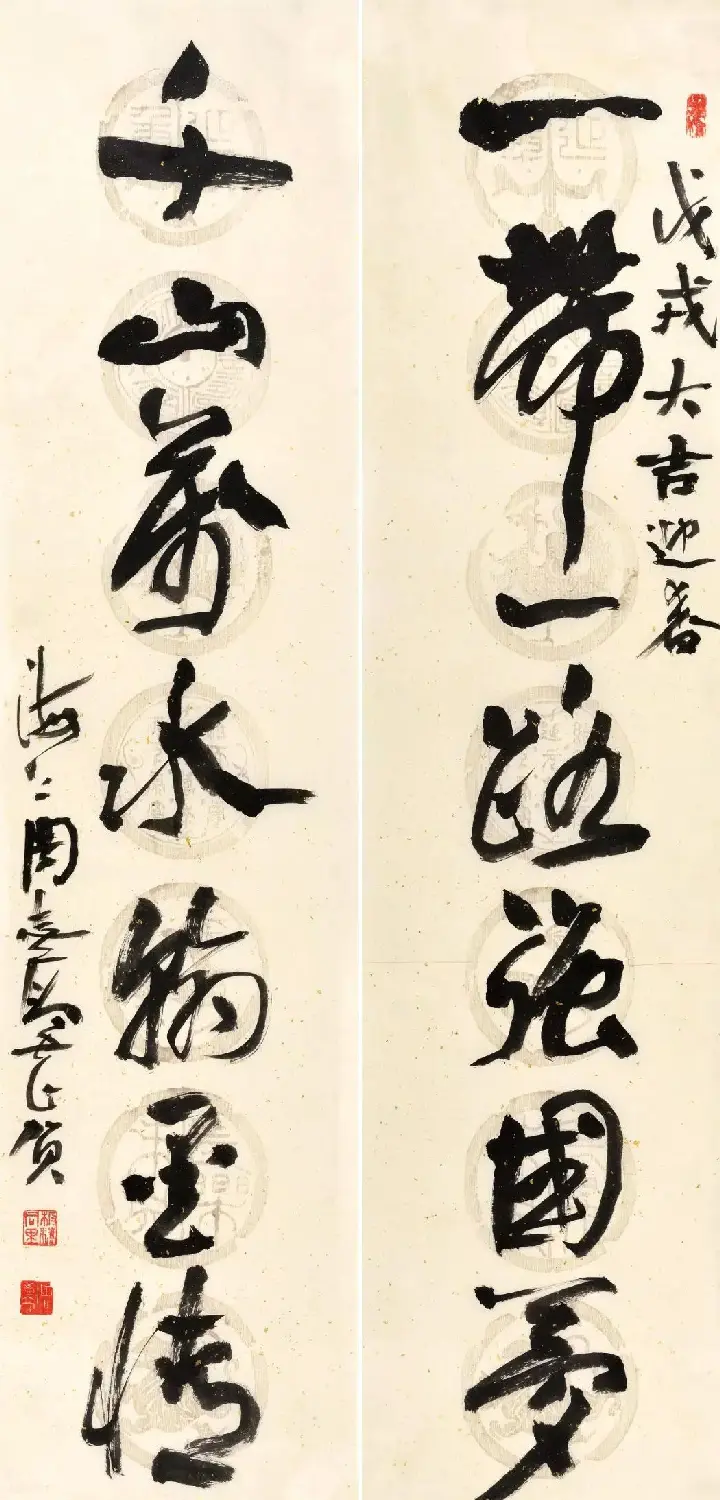 戊戌大吉迎春
一帶一路強國夢
千山萬水翰墨情
海上周 賀